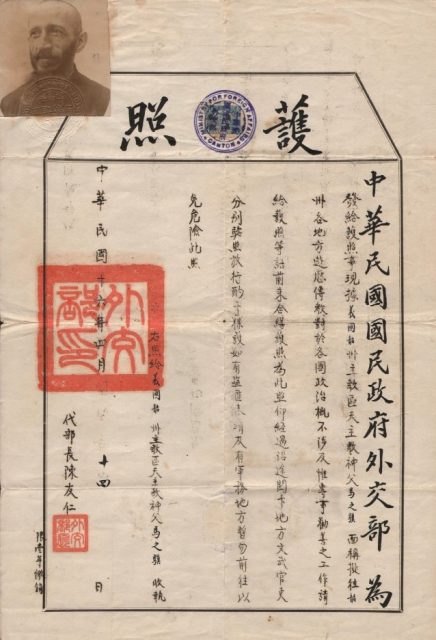 護照
MINISTER FOR FOREIGN AFFAIRS
CANTON
中華民國國民政府外交部 為
發給護照事現據義國韶州主教區天主教神父馬之 面稱擬往韶
州各地方遊歷傳教對於各國政治概不涉及惟專事勸善之工作請
給護照等語前來合繕護照為此照仰經過沿途關卡地方文武官吏
分別 照放行酌予保護如有盜匪 及有軍務地方暫勿前往以
免危險此照
右照給義國韶州主教區天主教神父馬之 收執
中華民國十六年四月 十四 日
外交部印
代部長陳友仁
限壹年繳銷